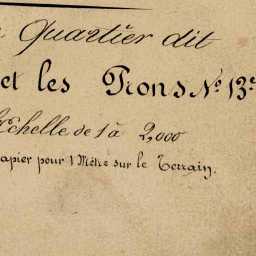 Quartier dit
et les Trons No. 13e
Echelle de 1 à 2,000
apier pour 1 Mètre sur le Terrain.